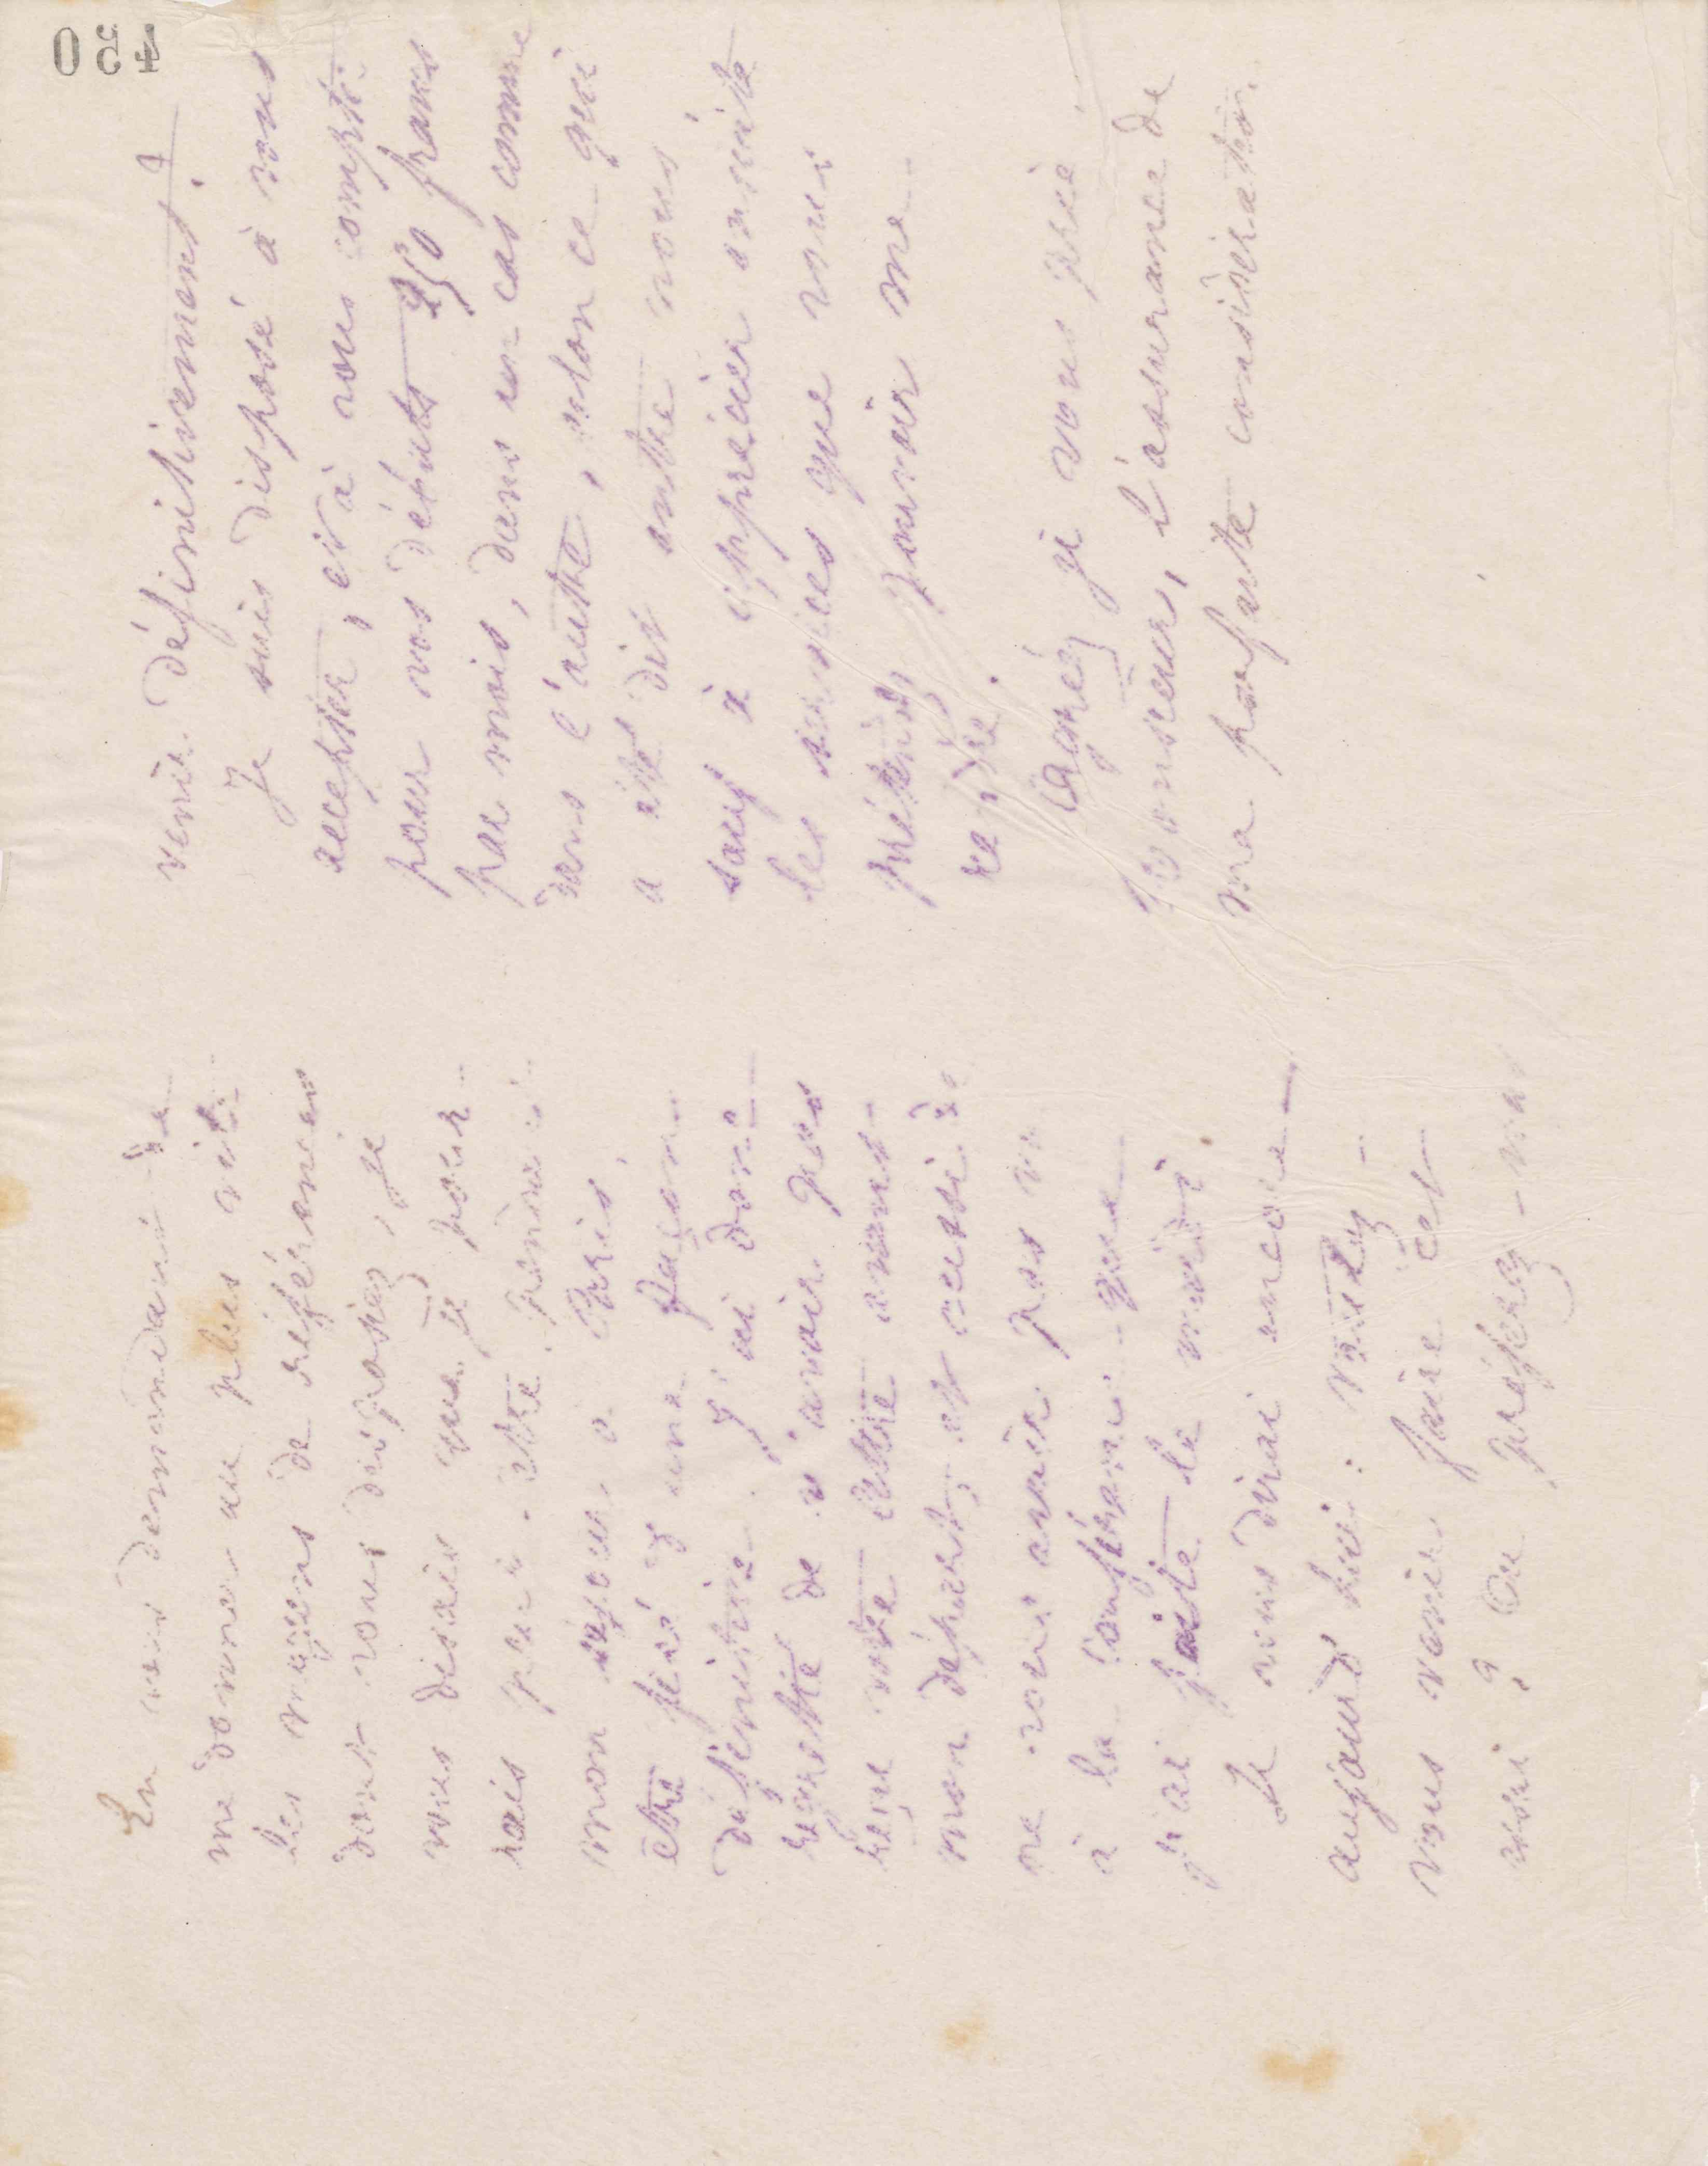 En vous demandant de
me donner au plus vite
les moyens de références
dont vous disposiez, je
vous disais que je pour-
rais peut-être pendant
mon séjour à Paris,
être fixé d'une façon
définitive. J'ai donc
regretté de n'avoir pas
reçu votre lettre avant
mon départ, et aussi de
ne vous avoir pas vu
à la conférence que
j'ai faite le midi.
Je vous dirai encore
aujourd'hui: voulez-
vous venir faire cet
essai? Ou préférez-vous
venir définitivement?
Je suis disposé à vous
accepter, et à vous compter
pour vos débuts 250 francs
par mois, dans un cas comme
dans l'autre, selon ce qui
a été dit entre nous
sauf à apprécier ensuite
les services que vous
prétendez pouvoir me
rendre.
Agréez je vous prie
Monsieur, l'assurance de
ma parfaite considération.
450